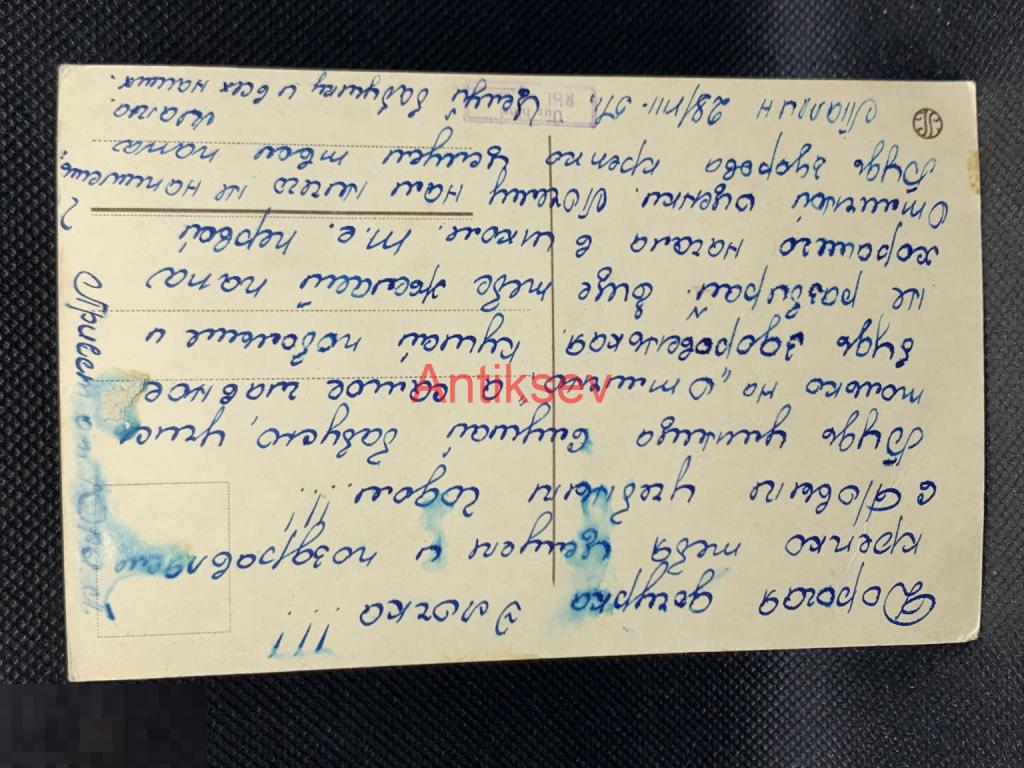 Дорогая дочурка Элочка !!!
крепко тебя целуем и поздравляем
с Новым учебным годом !!!
Будь умница слушай бабусю, учись
только на „Отлично“, а самое главное
Будь здоровенькая. Кушай побольше и
не разбирай. Ещё тебе желает папа
хорошего начала в школе. т.е. первой
Отличной оценки. Почему нам ничего не напишешь?
Будь здорова крепко целуем твои папа
мама.
Таллин 28/VIII. 57г. Целуй бабушку и всех наших.
Привет от
Antiksev